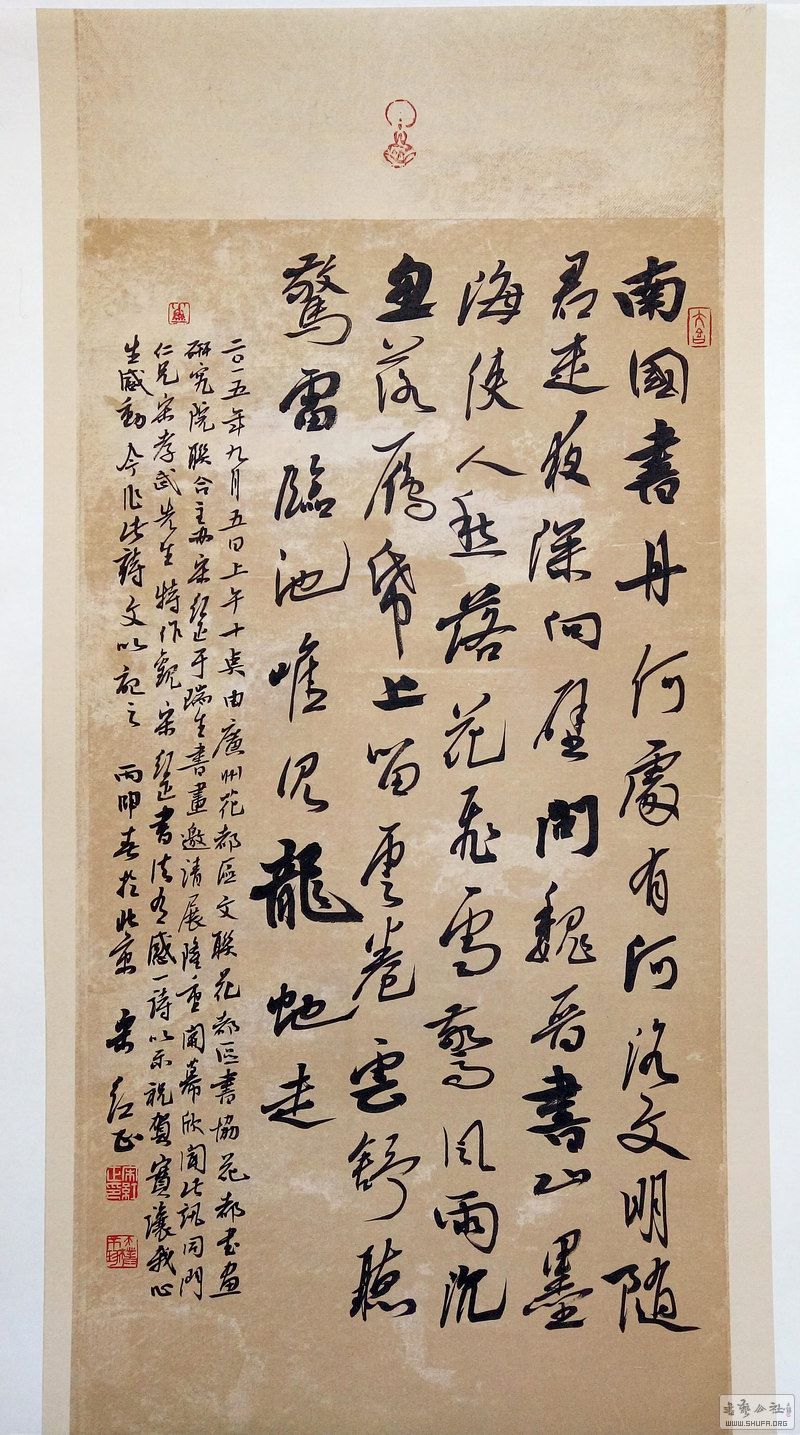 南國書丹何處有河洛文明随
君走夜深向壁問魏晋書山墨
海使人愁落花飛雪驚風雨沉
魚落雁帋上留雲卷雲舒聽
驚雷臨池唯見龍蛇走
二〇一五年九月五日上午十点由廣州花都區文联花都區書協花都书画
研究院联合主办宋红正于瑞生書畫邀请展隆重開幕欣闻此訊同門
仁兄宋孝武先生特作觀宋红正書法有感一诗以示祝賀實讓我心
生感動今作此詩文以記之 丙申春於北京 宋红正
宋紅正印
WWW.SHUFA.ORG